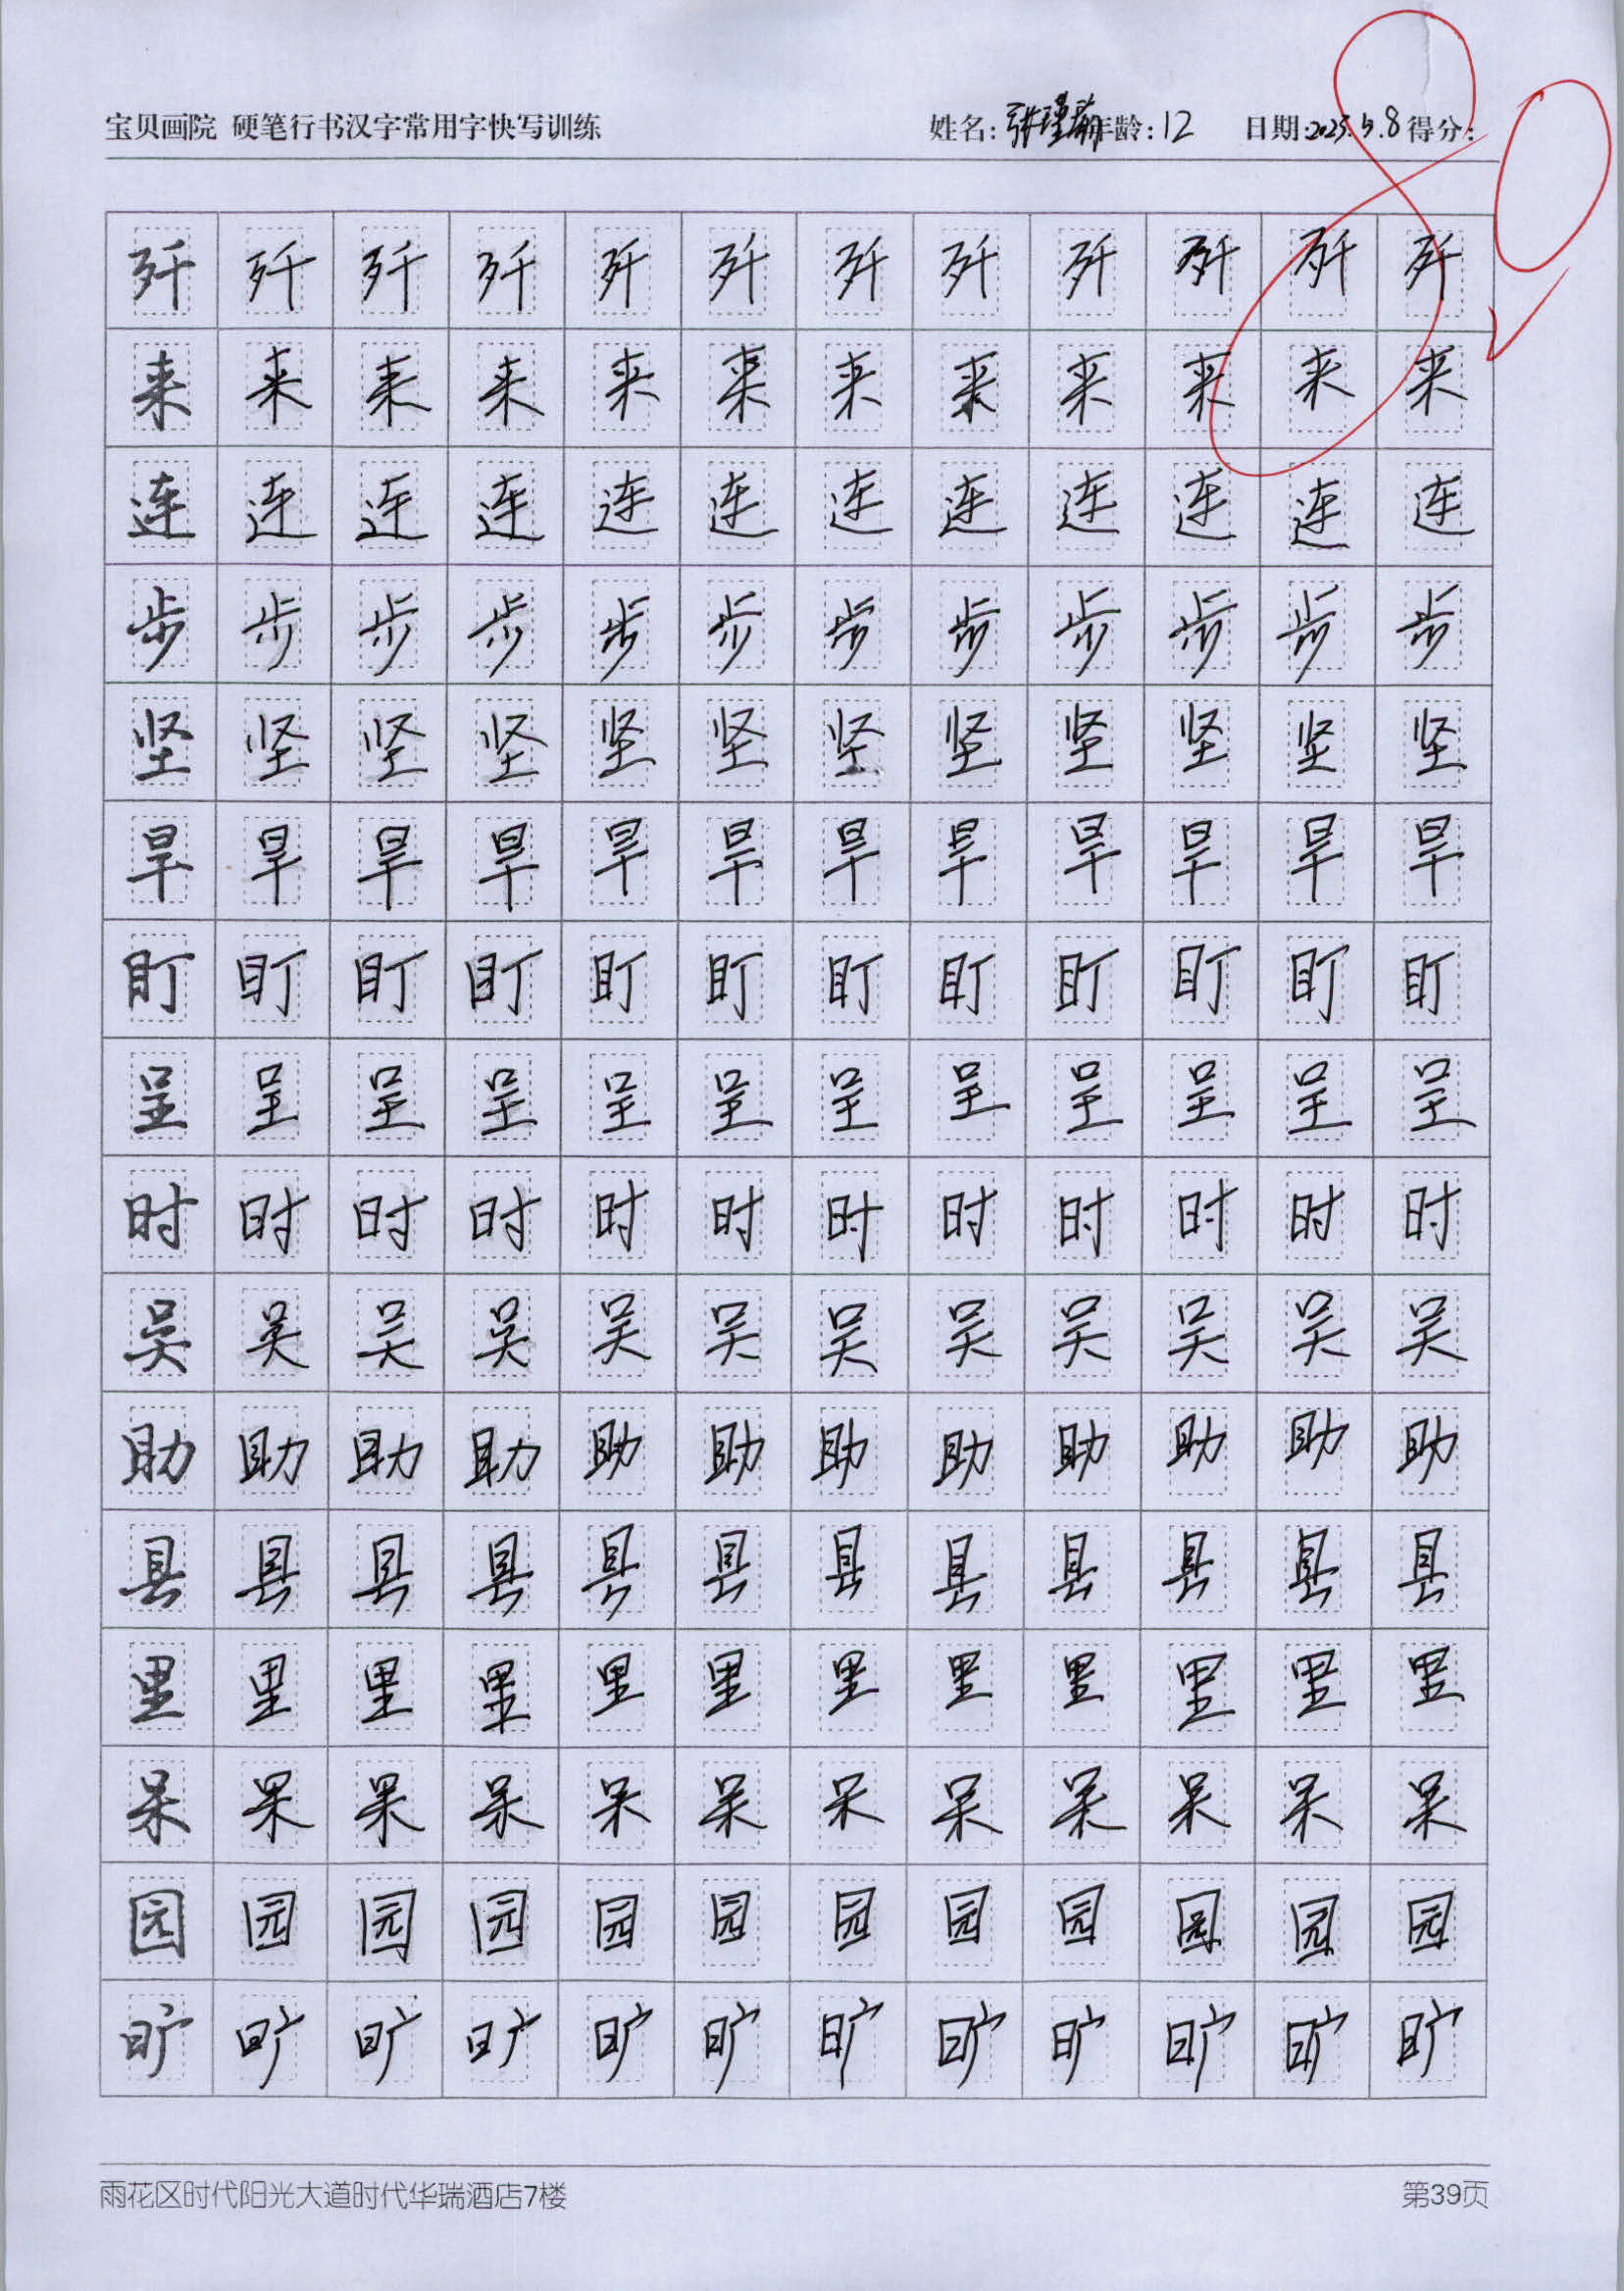 宝贝画院 硬笔行书汉字常用字快写训练 姓名: 张瑾 年龄: 12 日期: 2025.5.8 得分: 80
歼 歼 歼 歼 歼 歼 歼 歼 歼 歼 歼 歼
来 来 来 来 来 来 来 来 来 来 来 来
连 连 连 连 连 连 连 连 连 连 连 连
步 步 步 步 步 步 步 步 步 步 步 步
坚 坚 坚 坚 坚 坚 坚 坚 坚 坚 坚 坚
旱 旱 旱 旱 旱 旱 旱 旱 旱 旱 旱 旱
盯 盯 盯 盯 盯 盯 盯 盯 盯 盯 盯 盯
呈 呈 呈 呈 呈 呈 呈 呈 呈 呈 呈 呈
时 时 时 时 时 时 时 时 时 时 时 时
吴 吴 吴 吴 吴 吴 吴 吴 吴 吴 吴 吴
助 助 助 助 助 助 助 助 助 助 助 助
县 县 县 县 县 县 县 县 县 县 县 县
里 里 里 里 里 里 里 里 里 里 里 里
呆 呆 呆 呆 呆 呆 呆 呆 呆 呆 呆 呆
园 园 园 园 园 园 园 园 园 园 园 园
旷 旷 旷 旷 旷 旷 旷 旷 旷 旷 旷 旷
雨花区时代阳光大道时代华瑞酒店7楼 第39页